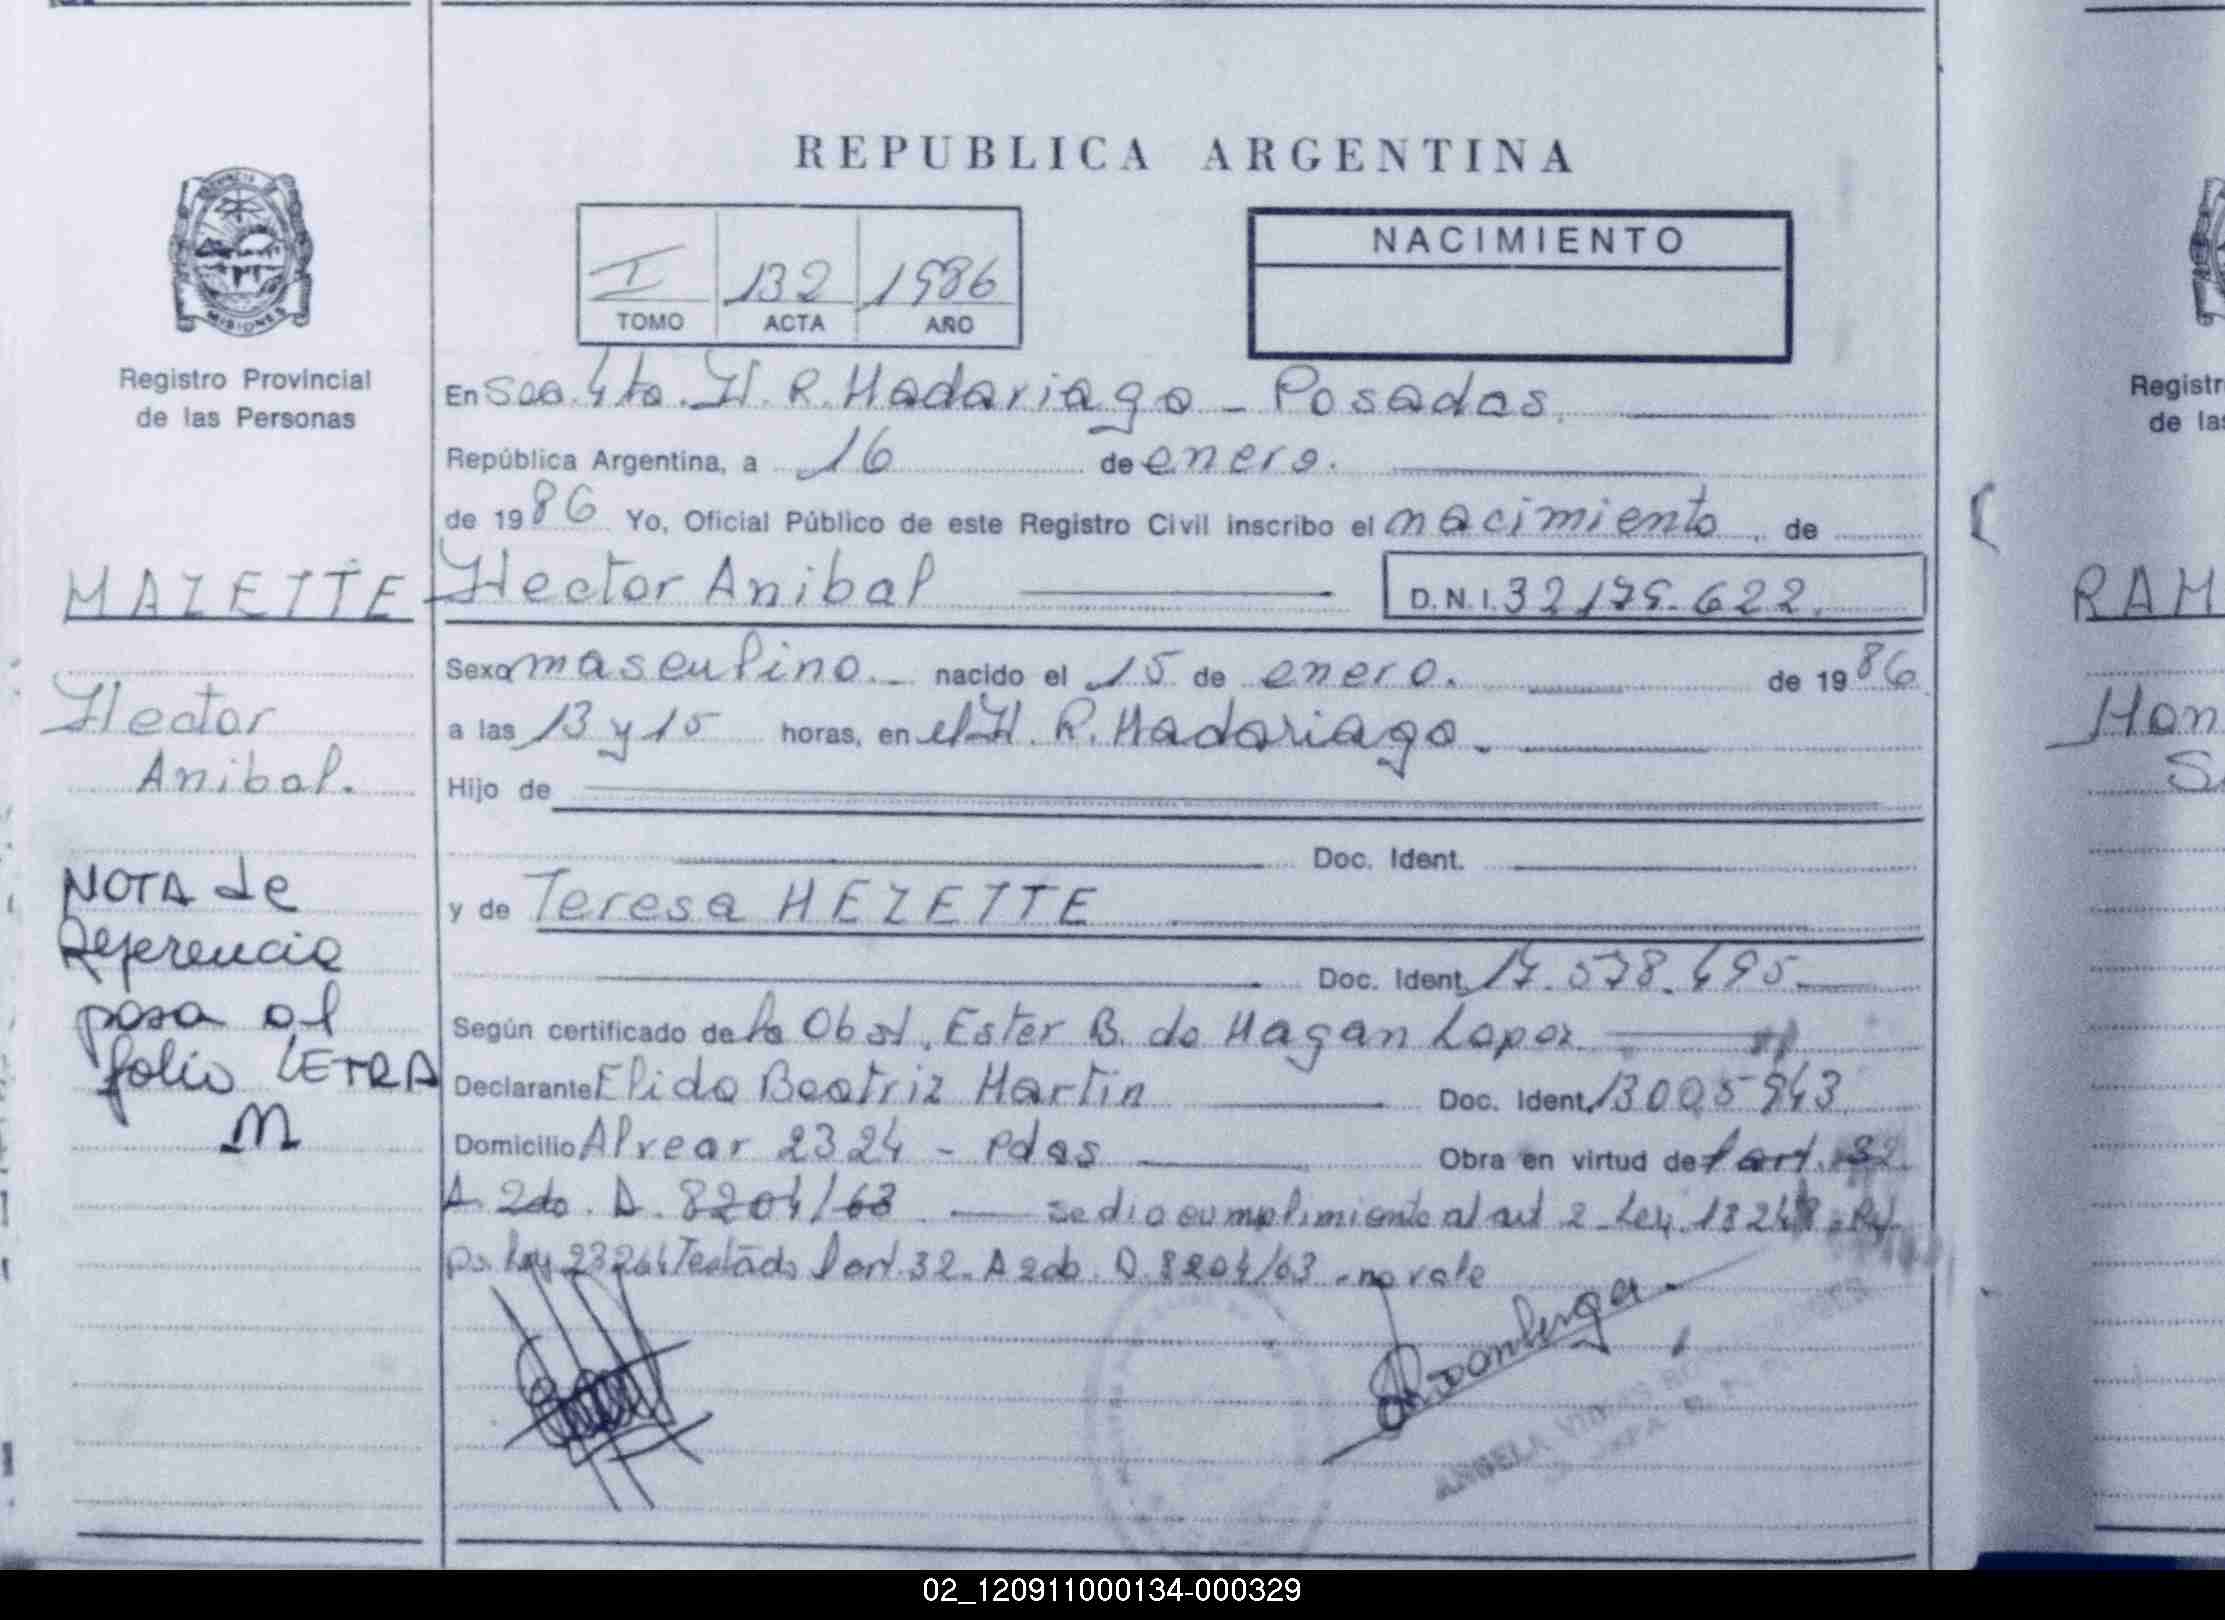 REPUBLICA ARGENTINA
PROVINCIA DE
MISIONES
Registro Provincial
de las Personas
I 132 1986
TOMO ACTA AÑO
NACIMIENTO
En Sec. 4ta. H. R. Madariaga - Posadas.
República Argentina, a 16 de enero.
de 1986 Yo, Oficial Público de este Registro Civil inscribo el nacimiento, de
MAZETTE
Hector Anibal D.N.I. 32.175.622.
Sexo masculino. nacido el 15 de enero. de 1986
Hector
Anibal.
a las 13 y 15 horas, en el H. R. Madariaga.
Hijo de
Doc. Ident.
NOTA de
Referencia
pasa al
folio LETRA
M
y de Teresa MEZETTE
Doc. Ident. 17.578.495.
Según certificado de la Obst. Ester B. de Magan Lopez
Declarante Elida Beatriz Martin Doc. Ident. 13005943
Domicilio Alvear 2324 - Pdas Obra en virtud del art. 32
A 2do. D. 8204/63 se dio cumplimiento al art 2 Ley. 18248
Ley 23264 Testado l art 32. A 2do. D. 8204/63 - no vale
ANGELA
Registr
de las
RAM